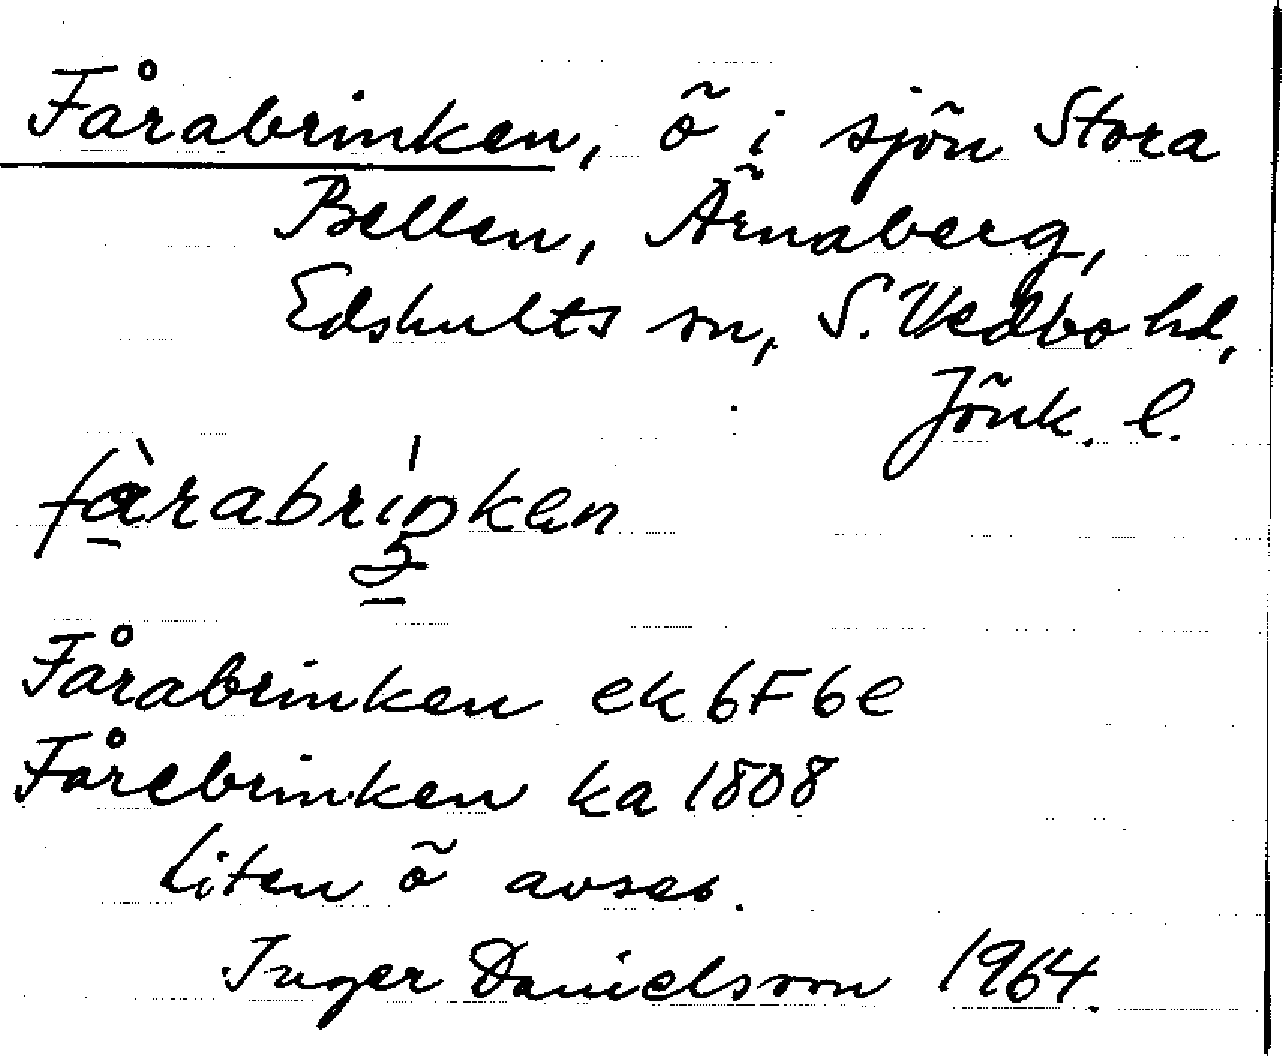 Fårabrinken, ö i sjön Stora
Bellen, Ärnaberg,
Edshults sn, S. Vedbo hd,
Jönk. l.
fàrabriŋken
Fårabrinken ek 6F6e
Fårebrinken ka 1808
Liten ö avses.
Inger Danielsson 1964.